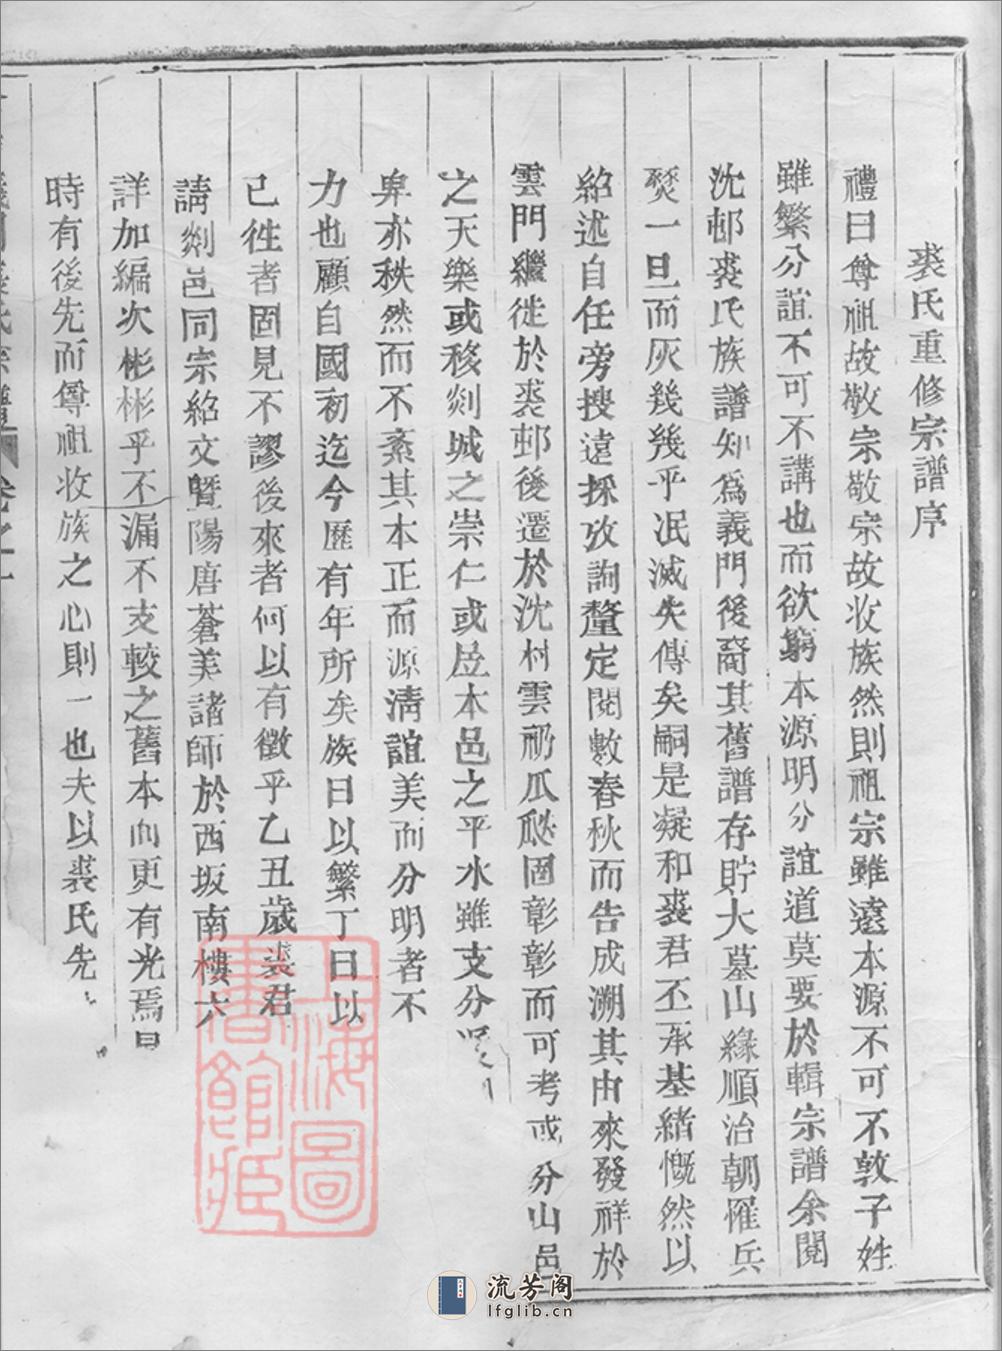 裘氏重修宗譜序
禮曰尊祖故敬宗敬宗故收族然則祖宗雖遠本源不可不敦子姓
雖繁分誼不可不講也而欲窮本源明分誼道莫要於輯宗譜余閱
沈邨裘氏族譜知爲義門後裔其舊譜存貯大墓山緣順治朝罹兵
燹一旦而灰幾幾乎泯滅失傳矣嗣是凝和裘君丕承基緒慨然以
紹述自任旁搜遠採攷詢釐定閱數春秋而告成溯其由來發祥於
雲門繼徙於裘邨後遷於沈村雲礽瓜瓞固彰彰而可考或分山邑
之天樂或移剡城之崇仁或居本邑之平水雖支分
卑亦秩然而不紊其本正而源淸誼美而分明者不
力也顧自國初迄今歷有年所矣族日以繁丁日以
已徃者固見不謬後來者何以有徵乎乙丑歲裘君
請剡邑同宗紹文暨陽唐蒼美諸師於西坂南樓大
詳加編次彬彬乎不漏不支較之舊本而更有光焉
時有後先而尊祖收族之心則一也夫以裘氏先
義門裘氏宗譜 卷之一
上海圖書館藏
流芳阁
lfglib.cn